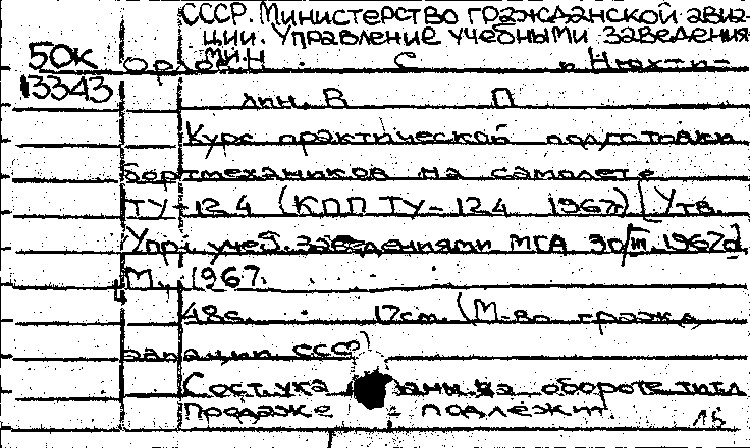 СССР. Министерство гражданской авиа-
ции. Управление учебными заведения-
50к ми
13343 Орлов С и Нюхти-
лин. В П
Курс практической подготовки
бортмехаников на самолете
ТУ-124 (КПП ТУ-124 1967г) [Утв.
Упр. учеб. заведениями МГА 30/III.1967г]
М., 1967.
48с. 17см. (М-во гражд.
авиации СССР)
Сост. ука ны на обороте тит.л
Продаже подлежит.